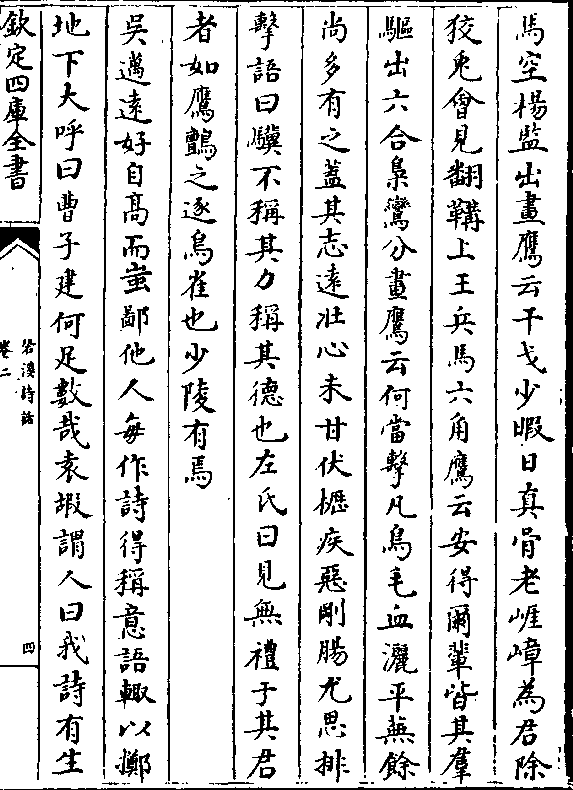 馬空楊監出畫鷹云干戈少暇日真骨老崕嶂為君除
狡兎會見翻鞲上王兵馬六角鷹云安得爾軰皆其羣
驅出六合梟鸞分畫鷹云何當擊凡鳥毛血灑平蕪餘
尚多有之蓋其志逺壯心未甘伏櫪疾惡剛腸尤思排
擊語曰驥不稱其力稱其德也左氏曰見無禮于其君
者如鷹鸇之逐鳥雀也少陵有焉
吳邁逺好自髙而蚩鄙他人每作詩得稱意語輙以擲
地下大呼曰曹子建何足數哉袁嘏謂人曰我詩有生
欽定四庫全書
䂬溪詩話
卷二
四